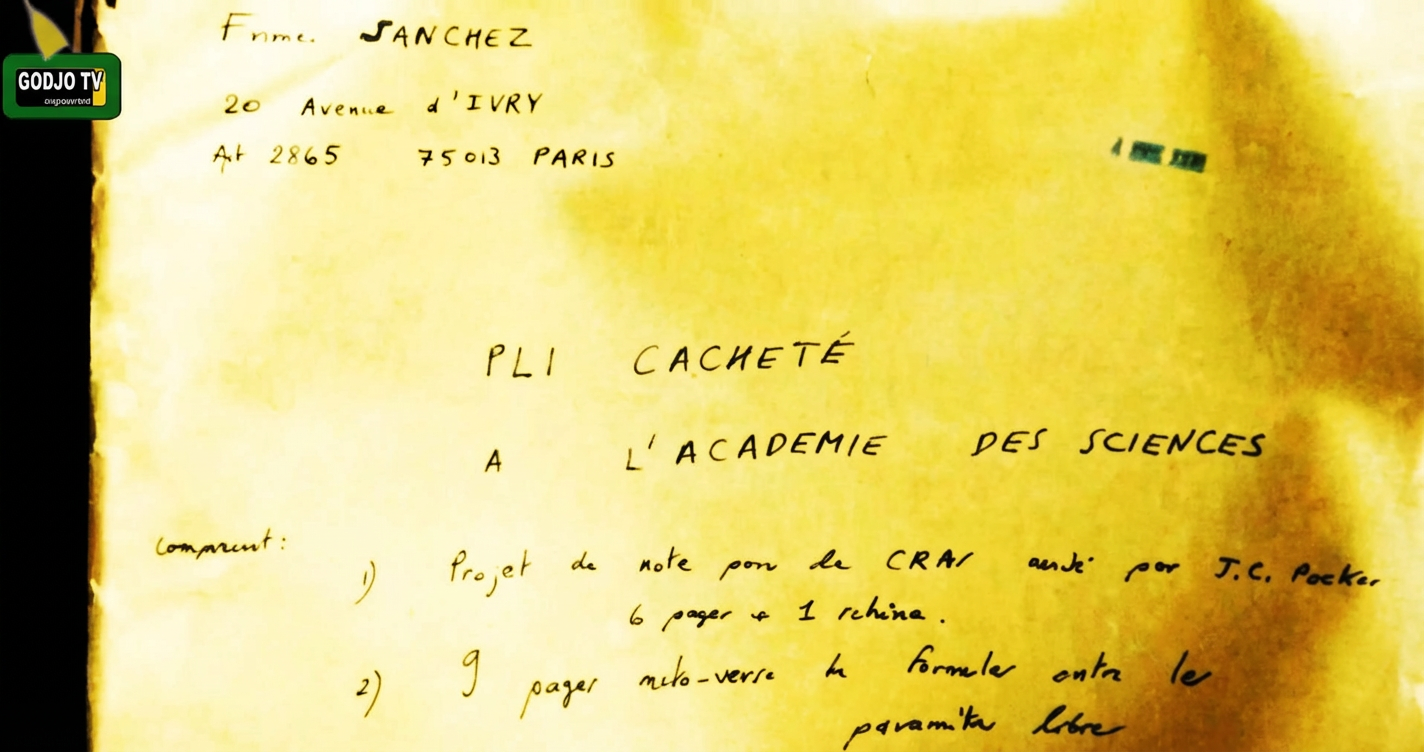 GODJO TV
empowered
SANCHEZ
20 Avenue d'IVRY
2865 75013 PARIS
PLI CACHETÉ
A L'ACADEMIE DES SCIENCES
Comprent:
1) Projet de note pour le CRAS par J.C. Pecker
6 pages + 1 schéma.
2) 9 pages recto-verso de formules entre les
paramètres libres